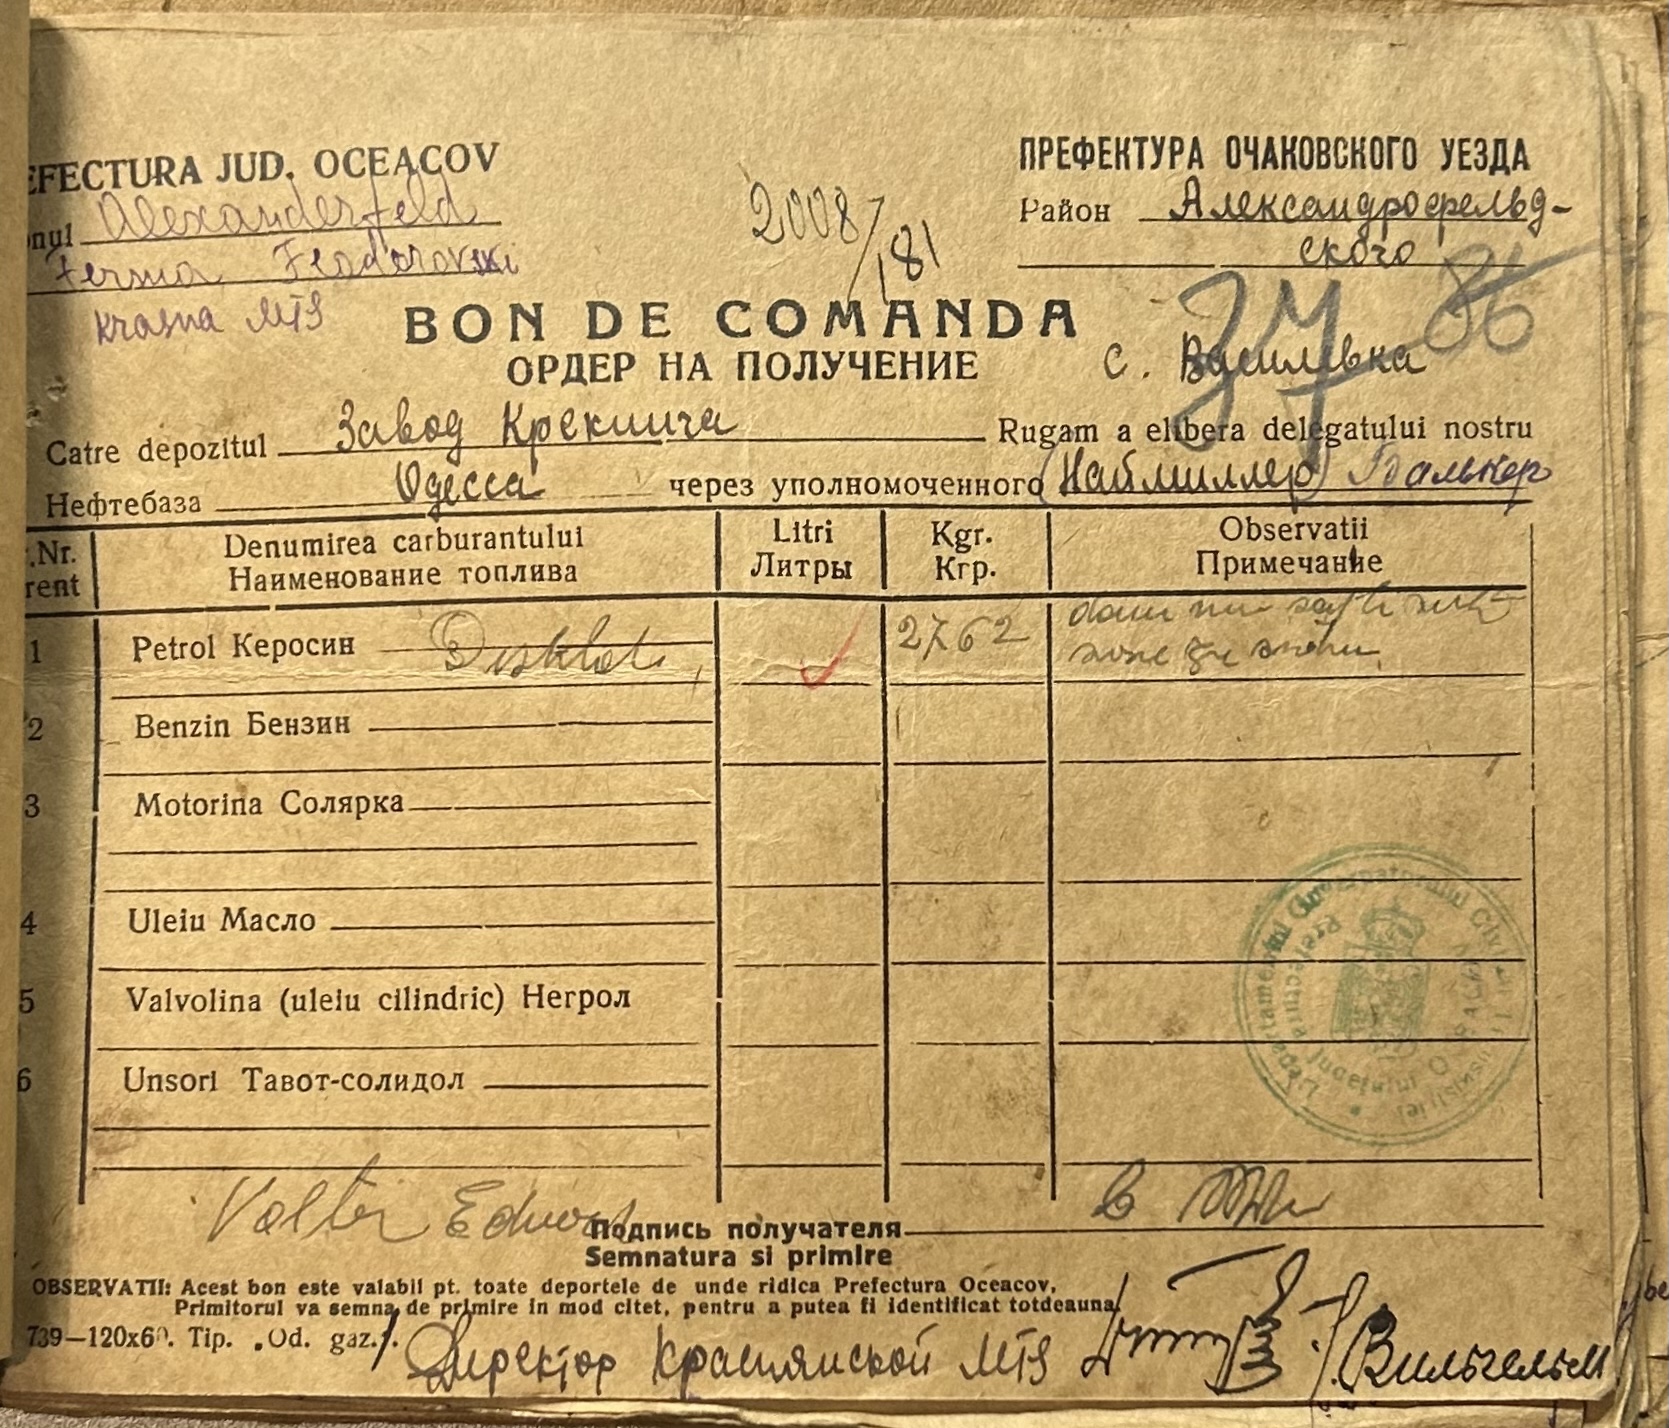 EFECTURA JUD. OCEACOV
onul Alexanderfeld
ferma Feodorovski
Krasna MTS
2008/181
ПРЕФЕКТУРА ОЧАКОВСКОГО УЕЗДА
Район Александрофельд-
ского
37 86
BON DE COMANDA
ОРДЕР НА ПОЛУЧЕНИЕ
с. Василевка
Catre depozitul Завод Крекинга Rugam a elibera delegatului nostru
Нефтебаза Одесса через уполномоченного (Наймиллер) Валькер
.Nr. Denumirea carburantului Litri Kgr. Observatii
rent Наименование топлива Литры Кгр. Примечание
1 Petrol Керосин 2762
2 Benzin Бензин
3 Motorina Солярка
4 Uleiu Масло
5 Valvolina (uleiu cilindric) Негрол
6 Unsori Тавот-солидол
Guvernatorului Civil
Prefectura Judeţului
Valter
Подпись получателя
Semnatura si primire
OBSERVATII: Acest bon este valabil pt. toate deportele de unde ridica Prefectura Oceacov,
Primitorul va semna de primire in mod citet, pentru a putea fi identificat totdeauna.
739—120x60. Tip. „Od. gaz.".
Директор Краснянской MTS Вильгельм